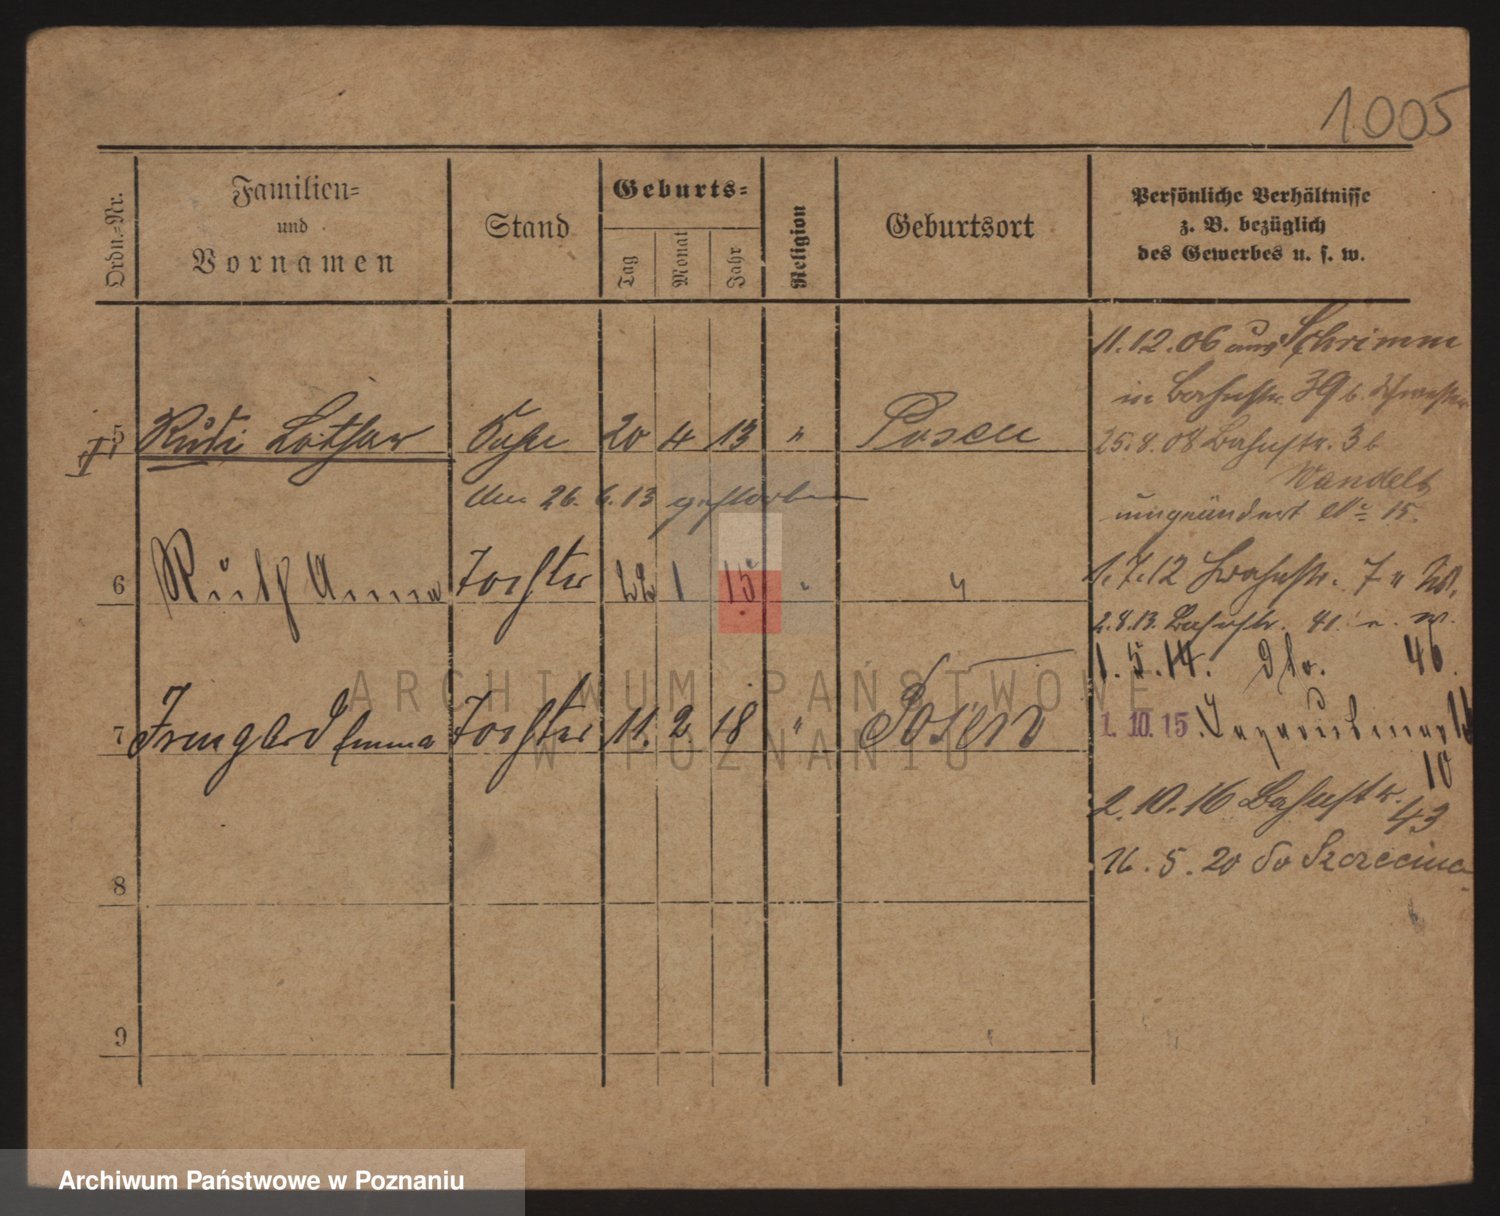 1005
Ordn.-Nr.
Familien-
und
Vornamen
Stand
Geburts-
Tag
Monat
Jahr
Religion
Geburtsort
Persönliche Verhältnisse
z. B. bezüglich
des Gewerbes u. s. w.
5 Rudi Lothar Sohn 20 4 13 " Posen
am 26. 6. 13 gestorben
6 Ruth Anna Tochter 22 1 15 " "
7 Irmgard Emma Tochter 11. 2 18 " Posen
8
9
11.12.06 aus Schrimm
in Bahnstr. 39 b. Schwester
25.8.08 Bahnstr. 3 b
Wandelt
umgeändert No 15.
1.7.12 Bahnstr. 7
2.8.13. Bahnstr. 41
1.5.14. 46
1.10.15.
10
2.10.16 Bahnstr.
43
16.5.20 do Szczecina
ARCHIWUM PAŃSTWOWE
W POZNANIU
Archiwum Państwowe w Poznaniu